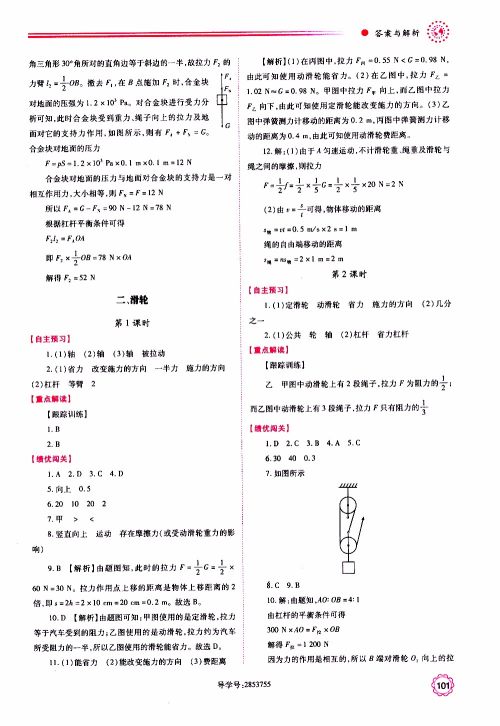 答案与解析
角三角形 30°角所对的直角边等于斜边的一半,故拉力 F₂ 的
力臂 l₂ = 1/2 OB。撤去 F₁,在 B 点施加 F₂ 时,合金块
对地面的压强为 1.2×10³ Pa。对合金块进行受力分
析可知,此时合金块受到重力、绳子向上的拉力及地
面对它的支持力作用,如图所示,则有 F_A + F_N = G。
F_A
F_N
G
合金块对地面的压力
F = pS = 1.2×10³ Pa×0.1 m×0.1 m = 12 N
合金块对地面的压力与地面对合金块的支持力是一对
相互作用力,大小相等,则 F_N = F = 12 N
所以 F_A = G - F_N = 90 N - 12 N = 78 N
根据杠杆平衡条件可得
F₂l₂ = F_A OA
即 F₂ × 1/2 OB = 78 N × OA
解得 F₂ = 52 N
二、滑轮
第 1 课时
【自主预习】
1. (1)轴 (2)轴 (3)轴 被拉动
2. (1)省力 改变施力的方向 一半力 施力的方向
(2)杠杆 等臂 2
【重点解读】
【跟踪训练】
1. B
2. B
【绩优闯关】
1. A 2. D 3. C 4. D
5. 向上 0.5
6. 20 10 20 2
7. 甲 > <
8. 竖直向上 运动 存在摩擦力(或受动滑轮重力的影
响)
9. B 【解析】由题图知,此时的拉力 F = 1/2 G = 1/2 ×
60 N = 30 N。拉力作用点上移的距离是物体上移距离的 2
倍,即 s = 2h = 2×10 cm = 20 cm = 0.2 m。故选 B。
10. D 【解析】由题图可知:甲图使用的是定滑轮,拉力
等于汽车受到的阻力;乙图使用的是动滑轮,拉力约为汽车
所受阻力的一半,所以乙图使用的滑轮能省力。故选 D。
11. (1)能省力 (2)能改变施力的方向 (3)费距离
【解析】(1)在丙图中,拉力 F丙 = 0.55 N < G = 0.98 N,
由此可知使用动滑轮能省力。(2)在乙图中,拉力 F乙 =
1.02 N ≈ G = 0.98 N。甲图中拉力 F甲 向上,而乙图中拉力
F乙 向下,由此可知使用定滑轮能改变施力的方向。(3)乙
图中弹簧测力计移动的距离为 0.2 m,丙图中弹簧测力计移
动的距离为 0.4 m,由此可知使用动滑轮费距离。
12. 解:(1)由于 A 匀速运动,不计滑轮重、绳重及滑轮与
绳之间的摩擦,则拉力
F = 1/2 f = 1/2 × 1/5 G = 1/2 × 1/5 × 20 N = 2 N
(2)由 v = s/t 可得,物体移动的距离
s物 = vt = 0.5 m/s × 2 s = 1 m
绳的自由端移动的距离
s绳 = ns物 = 2×1 m = 2 m
第 2 课时
【自主预习】
1. (1)定滑轮 动滑轮 省力 施力的方向 (2)几分
之一
2. (1)公共 轮 轴 (2)杠杆 省力杠杆
【重点解读】
【跟踪训练】
乙 甲图中动滑轮上有 2 段绳子,拉力 F 为阻力的 1/2;
而乙图中动滑轮上有 3 段绳子,拉力 F 只有阻力的 1/3
【绩优闯关】
1. D 2. C 3. B 4. A 5. C
6. 30 40 0.3
7. 如图所示
8. C 9. B
10. 解:由题知,AO∶OB = 4∶1
由杠杆的平衡条件可得
300 N × AO = F拉 × OB
解得 F拉 = 1 200 N
因为力的作用是相互的,所以 B 端对滑轮 O₁ 向上的拉
101
导学号:2853755